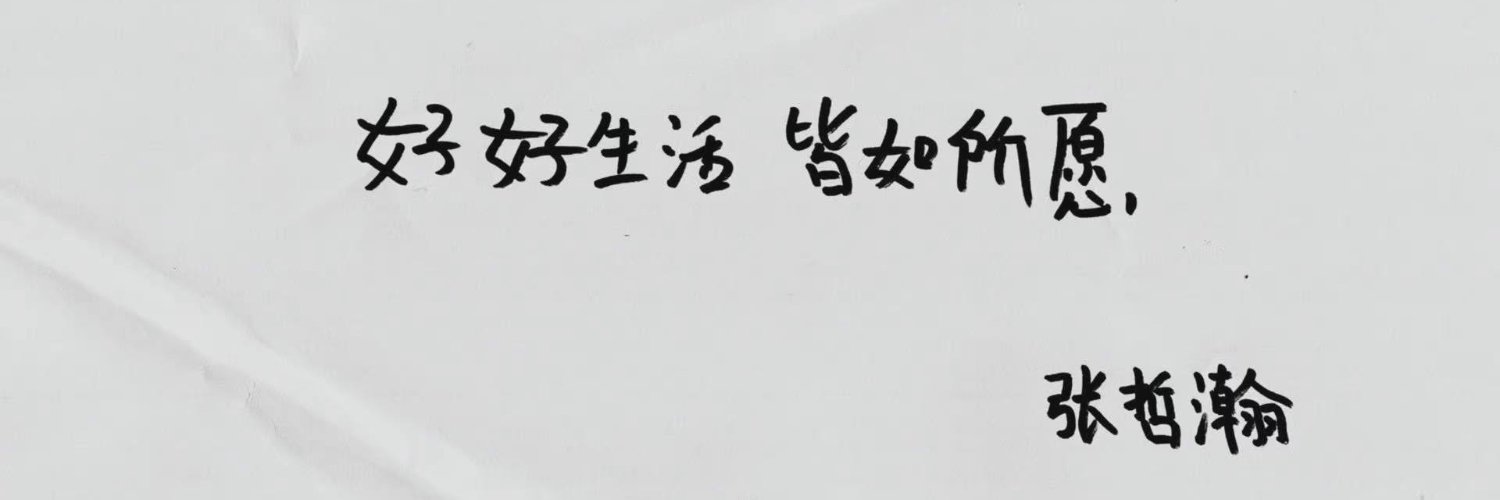 好好生活 皆如所愿,
张哲瀚